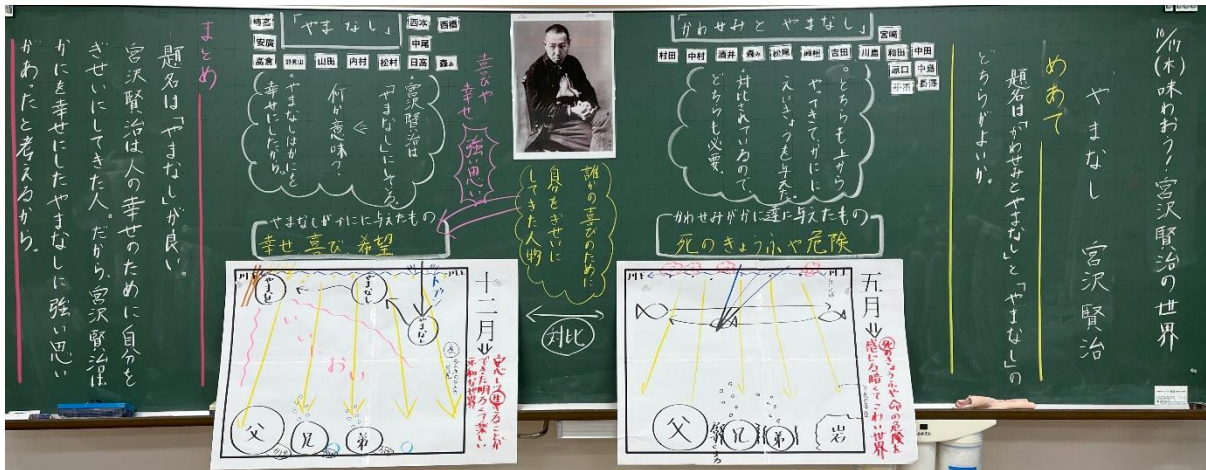 10/17(木)味わおう!宮沢賢治の世界
やまなし 宮沢賢治
めあて
題名は「かわせみとやまなし」と「やまなし」の
どちらがよいか。
「かわせみとやまなし」
宮崎
村田 中村 酒井 森み 松尾 吉田 川島 和田 中田
原口 中島
長澤
。どちらも上から
やってきてかにに
えいきょうを与えた。
対比されているので、
どちらも必要。
かわせみがかに達に与えたもの
死のきょうふや危険
五月
死のきょうふや命の危険を
感じる暗くてこわい世界
川下
川上
父
兄
弟
岩
誰かの喜びのために
自分をぎせいに
してきた人物
対比
「やまなし」
崎高
安廣
高倉 野見山 山田 内村 松村 日高 森ぁ
西本 西橋
中尾
喜びや
幸せ
強い思い
。宮沢賢治は
「やまなし」にしてる。
何か意味?
。やまなしはかにを
幸せにしたから。
やまなしがかにに与えたもの
幸せ 喜び 希望
十二月
安心して生きることが
できた明るくて楽しい
平和な世界
川下
川上
やまなし
やまなし
やまなし
いいにおい
父
兄
弟
まとめ
題名は「やまなし」が良い。
宮沢賢治は人の幸せのために自分を
ぎせいにしてきた人。だから、宮沢賢治は、
かにを幸せにしたやまなしに強い思い
があったと考えるから。